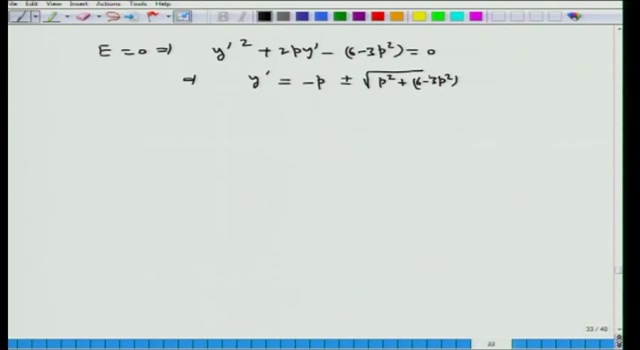 le View Insert Actions Tools Help
E = 0 ⇒ y'² + 2py' − (6−3p²) = 0
⇒ y' = −p ± √p² + (6−3p²)
33 / 40
33